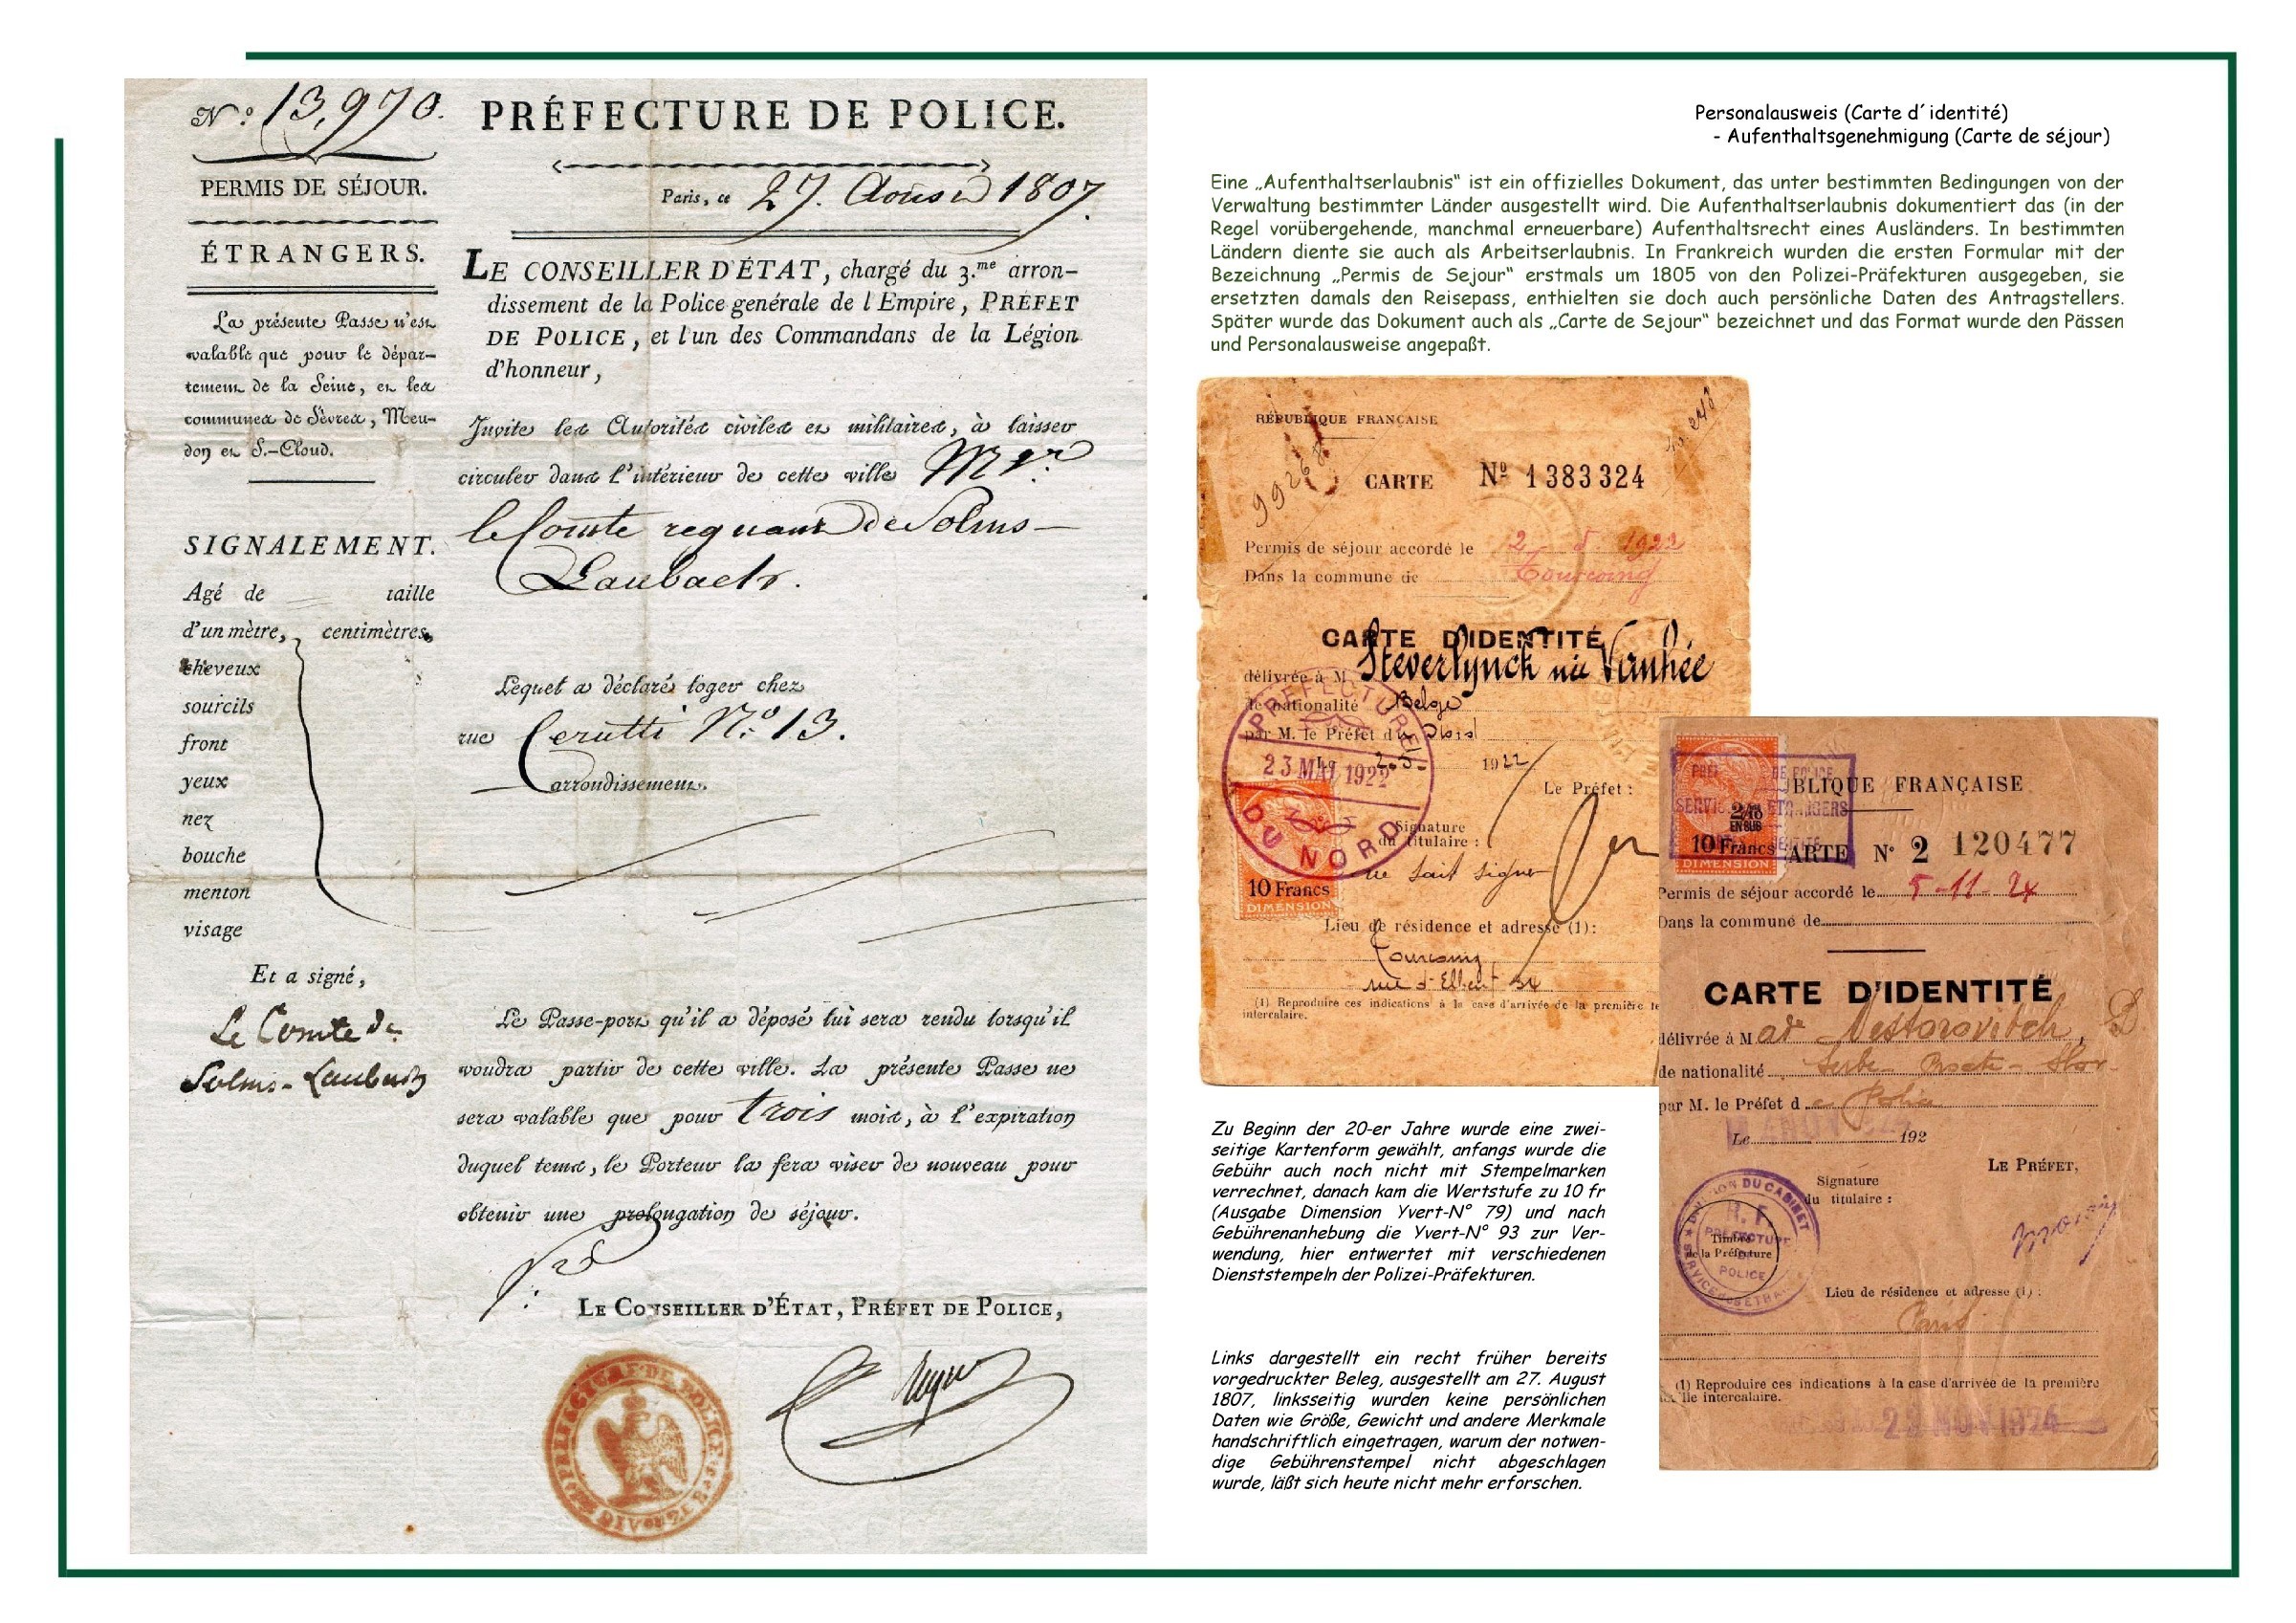 N.º 13,970.
PERMIS DE SÉJOUR.
ÉTRANGERS.
La présente Passe n'est
valable que pour le dépar-
tement de la Seine, et les
communes de Sèvres, Meu-
don et S.-Cloud.
SIGNALEMENT.
Agé de taille
d'un mètre, centimètres,
cheveux
sourcils
front
yeux
nez
bouche
menton
visage
Et a signé,
Le Comte de
Solms-Laubach
PRÉFECTURE DE POLICE.
Paris, ce 27. Aoust 1807.
LE CONSEILLER D'ÉTAT, chargé du 3.me arron-
dissement de la Police générale de l'Empire, PRÉFET
DE POLICE, et l'un des Commandans de la Légion
d'honneur,
Invite les Autorités civiles et militaires, à laisser
circuler dans l'intérieur de cette ville Mgr.
le Comte regnant de Solms-
Laubach.
Lequel a déclaré loger chez
rue Cerutti N.º 13.
arrondissement.
Le Passe-port qu'il a déposé lui sera rendu lorsqu'il
voudra partir de cette ville. La présente Passe ne
sera valable que pour trois mois, à l'expiration
duquel tems, le Porteur la fera viser de nouveau pour
obtenir une prolongation de séjour.
LE CONSEILLER D'ÉTAT, PRÉFET DE POLICE,
Personalausweis (Carte d´identité)
- Aufenthaltsgenehmigung (Carte de séjour)
Eine „Aufenthaltserlaubnis“ ist ein offizielles Dokument, das unter bestimmten Bedingungen von der
Verwaltung bestimmter Länder ausgestellt wird. Die Aufenthaltserlaubnis dokumentiert das (in der
Regel vorübergehende, manchmal erneuerbare) Aufenthaltsrecht eines Ausländers. In bestimmten
Ländern diente sie auch als Arbeitserlaubnis. In Frankreich wurden die ersten Formular mit der
Bezeichnung „Permis de Sejour“ erstmals um 1805 von den Polizei-Präfekturen ausgegeben, sie
ersetzten damals den Reisepass, enthielten sie doch auch persönliche Daten des Antragstellers.
Später wurde das Dokument auch als „Carte de Sejour“ bezeichnet und das Format wurde den Pässen
und Personalausweise angepaßt.
RÉPUBLIQUE FRANÇAISE
99268
CARTE Nº 1383324
Permis de séjour accordé le 2 5 1922
Dans la commune de Tourcoing
CARTE D'IDENTITÉ
délivrée à M Steverlynck née Vanhée
de nationalité Belge
par M. le Préfet du
Le 2-5- 1922
PRÉFECTURE
23 MAI 1922
DU NORD
Le Préfet :
Signature
du titulaire :
ne sait signer
10 Francs
DIMENSION
Lieu de résidence et adresse (1):
Tourcoing
(1) Reproduire ces indications à la case d'arrivée de la première
intercalaire.
BLIQUE FRANÇAISE
EN SUS
10 Francs
DIMENSION
ARTE Nº 2 120477
Permis de séjour accordé le 5-11-24
Dans la commune de
CARTE D'IDENTITÉ
délivrée à M ad Nestorovitch
de nationalité Serbe-
par M. le Préfet de Police
Le 192
LE PRÉFET,
Signature
du titulaire :
R. F.
PRÉFECTURE
POLICE
Timbre
de la Préfecture
Lieu de résidence et adresse (1) :
Paris
(1) Reproduire ces indications à la case d'arrivée de la première
intercalaire.
NOV 1924
Zu Beginn der 20-er Jahre wurde eine zwei-
seitige Kartenform gewählt, anfangs wurde die
Gebühr auch noch nicht mit Stempelmarken
verrechnet, danach kam die Wertstufe zu 10 fr
(Ausgabe Dimension Yvert-N° 79) und nach
Gebührenanhebung die Yvert-N° 93 zur Ver-
wendung, hier entwertet mit verschiedenen
Dienststempeln der Polizei-Präfekturen.
Links dargestellt ein recht früher bereits
vorgedruckter Beleg, ausgestellt am 27. August
1807, linksseitig wurden keine persönlichen
Daten wie Größe, Gewicht und andere Merkmale
handschriftlich eingetragen, warum der notwen-
dige Gebührenstempel nicht abgeschlagen
wurde, läßt sich heute nicht mehr erforschen.